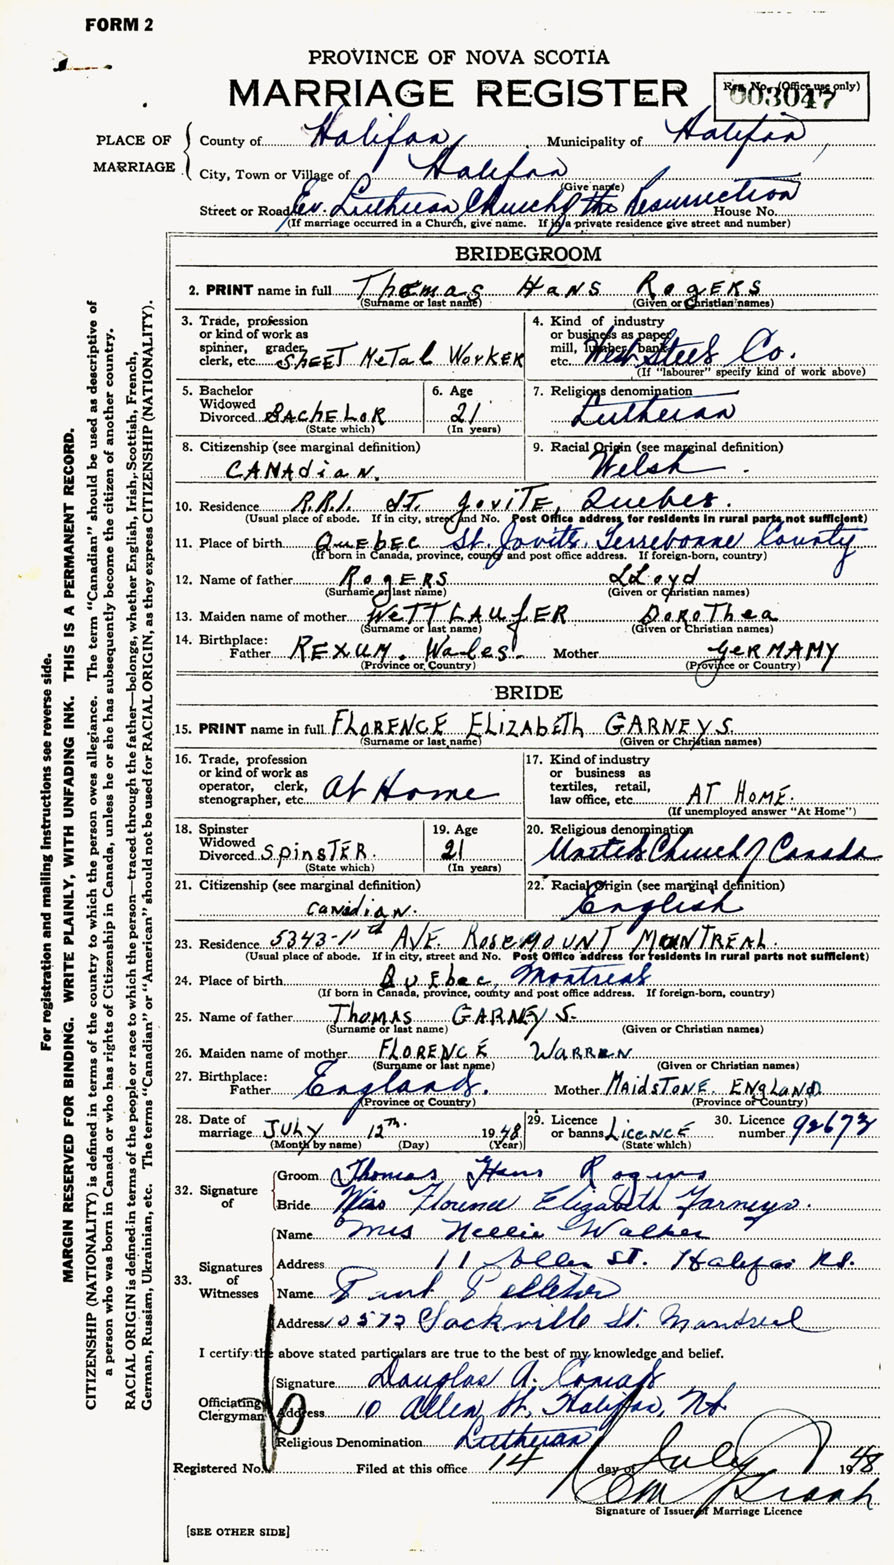 FORM 2
PROVINCE OF NOVA SCOTIA
MARRIAGE REGISTER
Reg. No. (Office use only)
003047
PLACE OF MARRIAGE
County of Halifax Municipality of Halifax
City, Town or Village of Halifax
(Give name)
Street or Road Ev. Lutheran Church of the Resurrection House No.
(If marriage occurred in a Church, give name. If in a private residence give street and number)
BRIDEGROOM
2. PRINT name in full Thomas Hans Rogers
(Surname or last name) (Given or Christian names)
3. Trade, profession or kind of work as spinner, grader, clerk, etc. Sheet Metal Worker
4. Kind of industry or business as paper mill, lumber, bank, etc. Steel Co.
(If "labourer" specify kind of work above)
5. Bachelor Widowed Divorced Bachelor
(State which)
6. Age 21
(In years)
7. Religious denomination Lutheran
8. Citizenship (see marginal definition) Canadian.
9. Racial Origin (see marginal definition) Welsh.
10. Residence R.R.1. St. Jovite, Quebec.
(Usual place of abode. If in city, street and No. Post Office address for residents in rural parts not sufficient)
11. Place of birth Quebec St. Jovite, Terrebonne County
(If born in Canada, province, county and post office address. If foreign-born, country)
12. Name of father Rogers LLoyd
(Surname or last name) (Given or Christian names)
13. Maiden name of mother WETTLAUFER DOROThea
(Surname or last name) (Given or Christian names)
14. Birthplace: Father REXUM. Wales. Mother GERMAMY
(Province or Country) (Province or Country)
BRIDE
15. PRINT name in full FLORENCE ELIZAbETH GARNEYS.
(Surname or last name) (Given or Christian names)
16. Trade, profession or kind of work as operator, clerk, stenographer, etc. At Home
17. Kind of industry or business as textiles, retail, law office, etc. AT HOME.
(If unemployed answer "At Home")
18. Spinster Widowed Divorced SpinsTER.
(State which)
19. Age 21
(In years)
20. Religious denomination United Church of Canada
21. Citizenship (see marginal definition) Canadian.
22. Racial Origin (see marginal definition) English
23. Residence 5343-11th AVE. ROSEMOUNT MONTREAL.
(Usual place of abode. If in city, street and No. Post Office address for residents in rural parts not sufficient)
24. Place of birth Quebec, Montreal
(If born in Canada, province, county and post office address. If foreign-born, country)
25. Name of father THOMAS GARNEYS.
(Surname or last name) (Given or Christian names)
26. Maiden name of mother FLORENCE WARREN
(Surname or last name) (Given or Christian names)
27. Birthplace: Father England. Mother MAIDSTONE. ENGLAND
(Province or Country) (Province or Country)
28. Date of marriage JULY 12th. 1948
(Month by name) (Day) (Year)
29. Licence or banns LICENCE
(State which)
30. Licence number 92673
32. Signature of
Groom Thomas Hans Rogers
Bride Miss Florence Elizabeth Garneys.
33. Signatures of Witnesses
Name Mrs Nellie Walker
Address 11 Allen ST. Halifax
Name Pelletier
Address 10572 Sackville St. Montreal
I certify the above stated particulars are true to the best of my knowledge and belief.
Officiating Clergyman
Signature Douglas A. Conrad
Address 10 Allen St, Halifax, NS
Religious Denomination Lutheran
Registered No. Filed at this office 14 day of July 1948
Signature of Issuer of Marriage Licence
[SEE OTHER SIDE]
For registration and mailing instructions see reverse side.
MARGIN RESERVED FOR BINDING. WRITE PLAINLY, WITH UNFADING INK. THIS IS A PERMANENT RECORD.
CITIZENSHIP (NATIONALITY) is defined in terms of the country to which the person owes allegiance. The term "Canadian" should be used as descriptive of
a person who was born in Canada or who has rights of Citizenship in Canada, unless he or she has subsequently become the citizen of another country.
RACIAL ORIGIN is defined in terms of the people or race to which the person—traced through the father—belongs, whether English, Irish, Scottish, French,
German, Russian, Ukrainian, etc. The terms "Canadian" or "American" should not be used for RACIAL ORIGIN, as they express CITIZENSHIP (NATIONALITY).